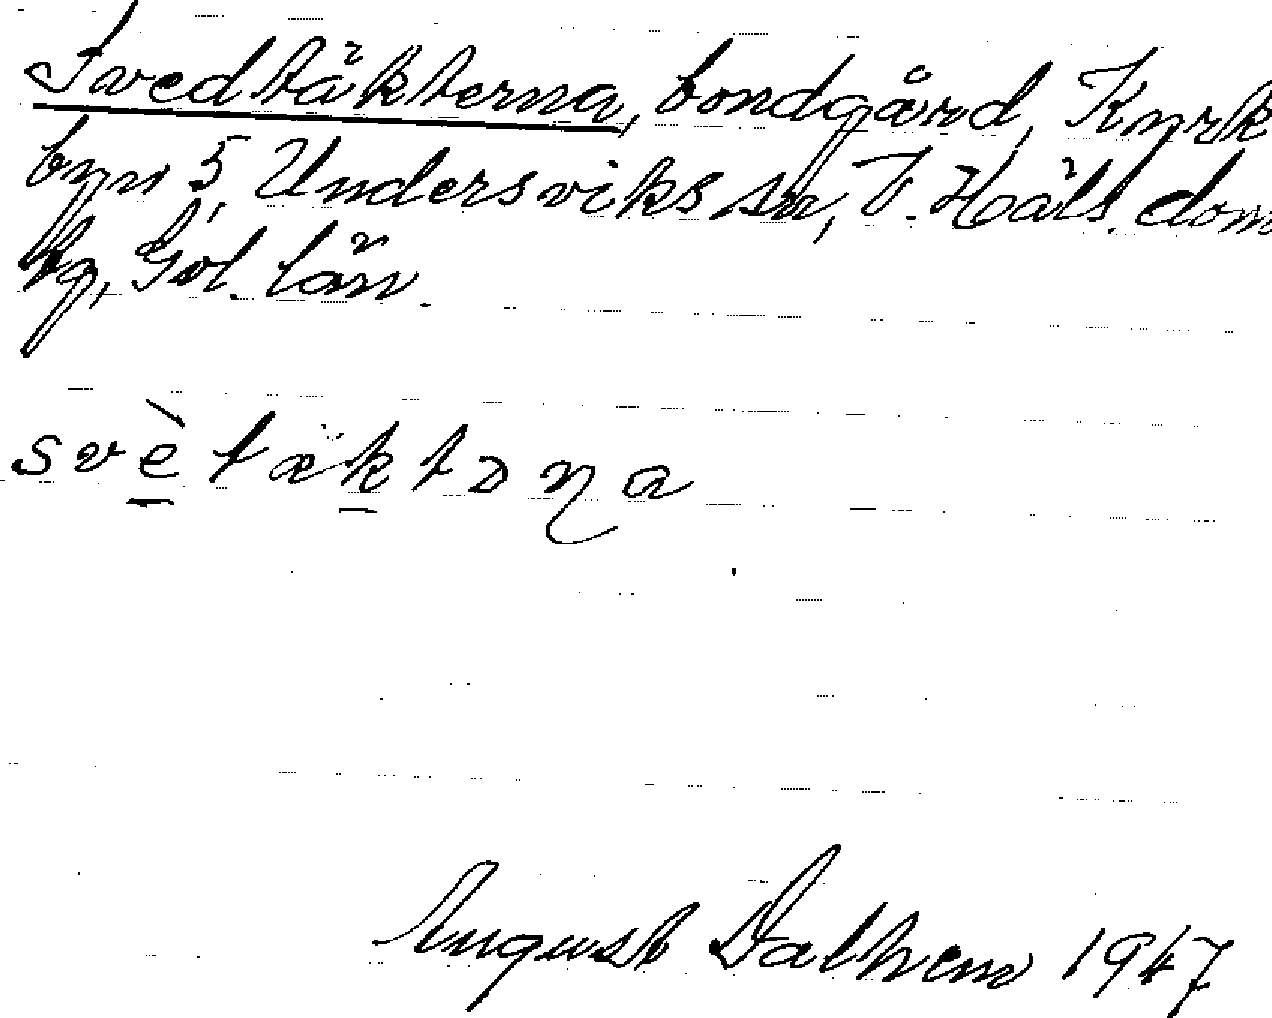 Svedtäkterna, bondgård, Kyrk
byn 5, Undersviks sn, V. Häls. dom
sg, Gvl. län.
svètäktǝṇa
August Dalhem 1947